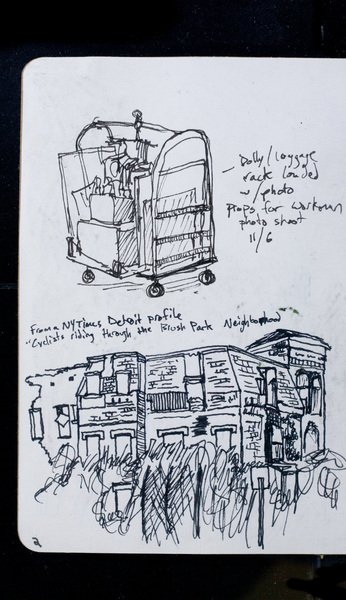 - Dolly/luggage
rack loaded
w/photo
props for workmen
photo shoot
11/6
From a NYTimes Detroit profile
"Cyclists riding through the Brush Park Neighborhood
2